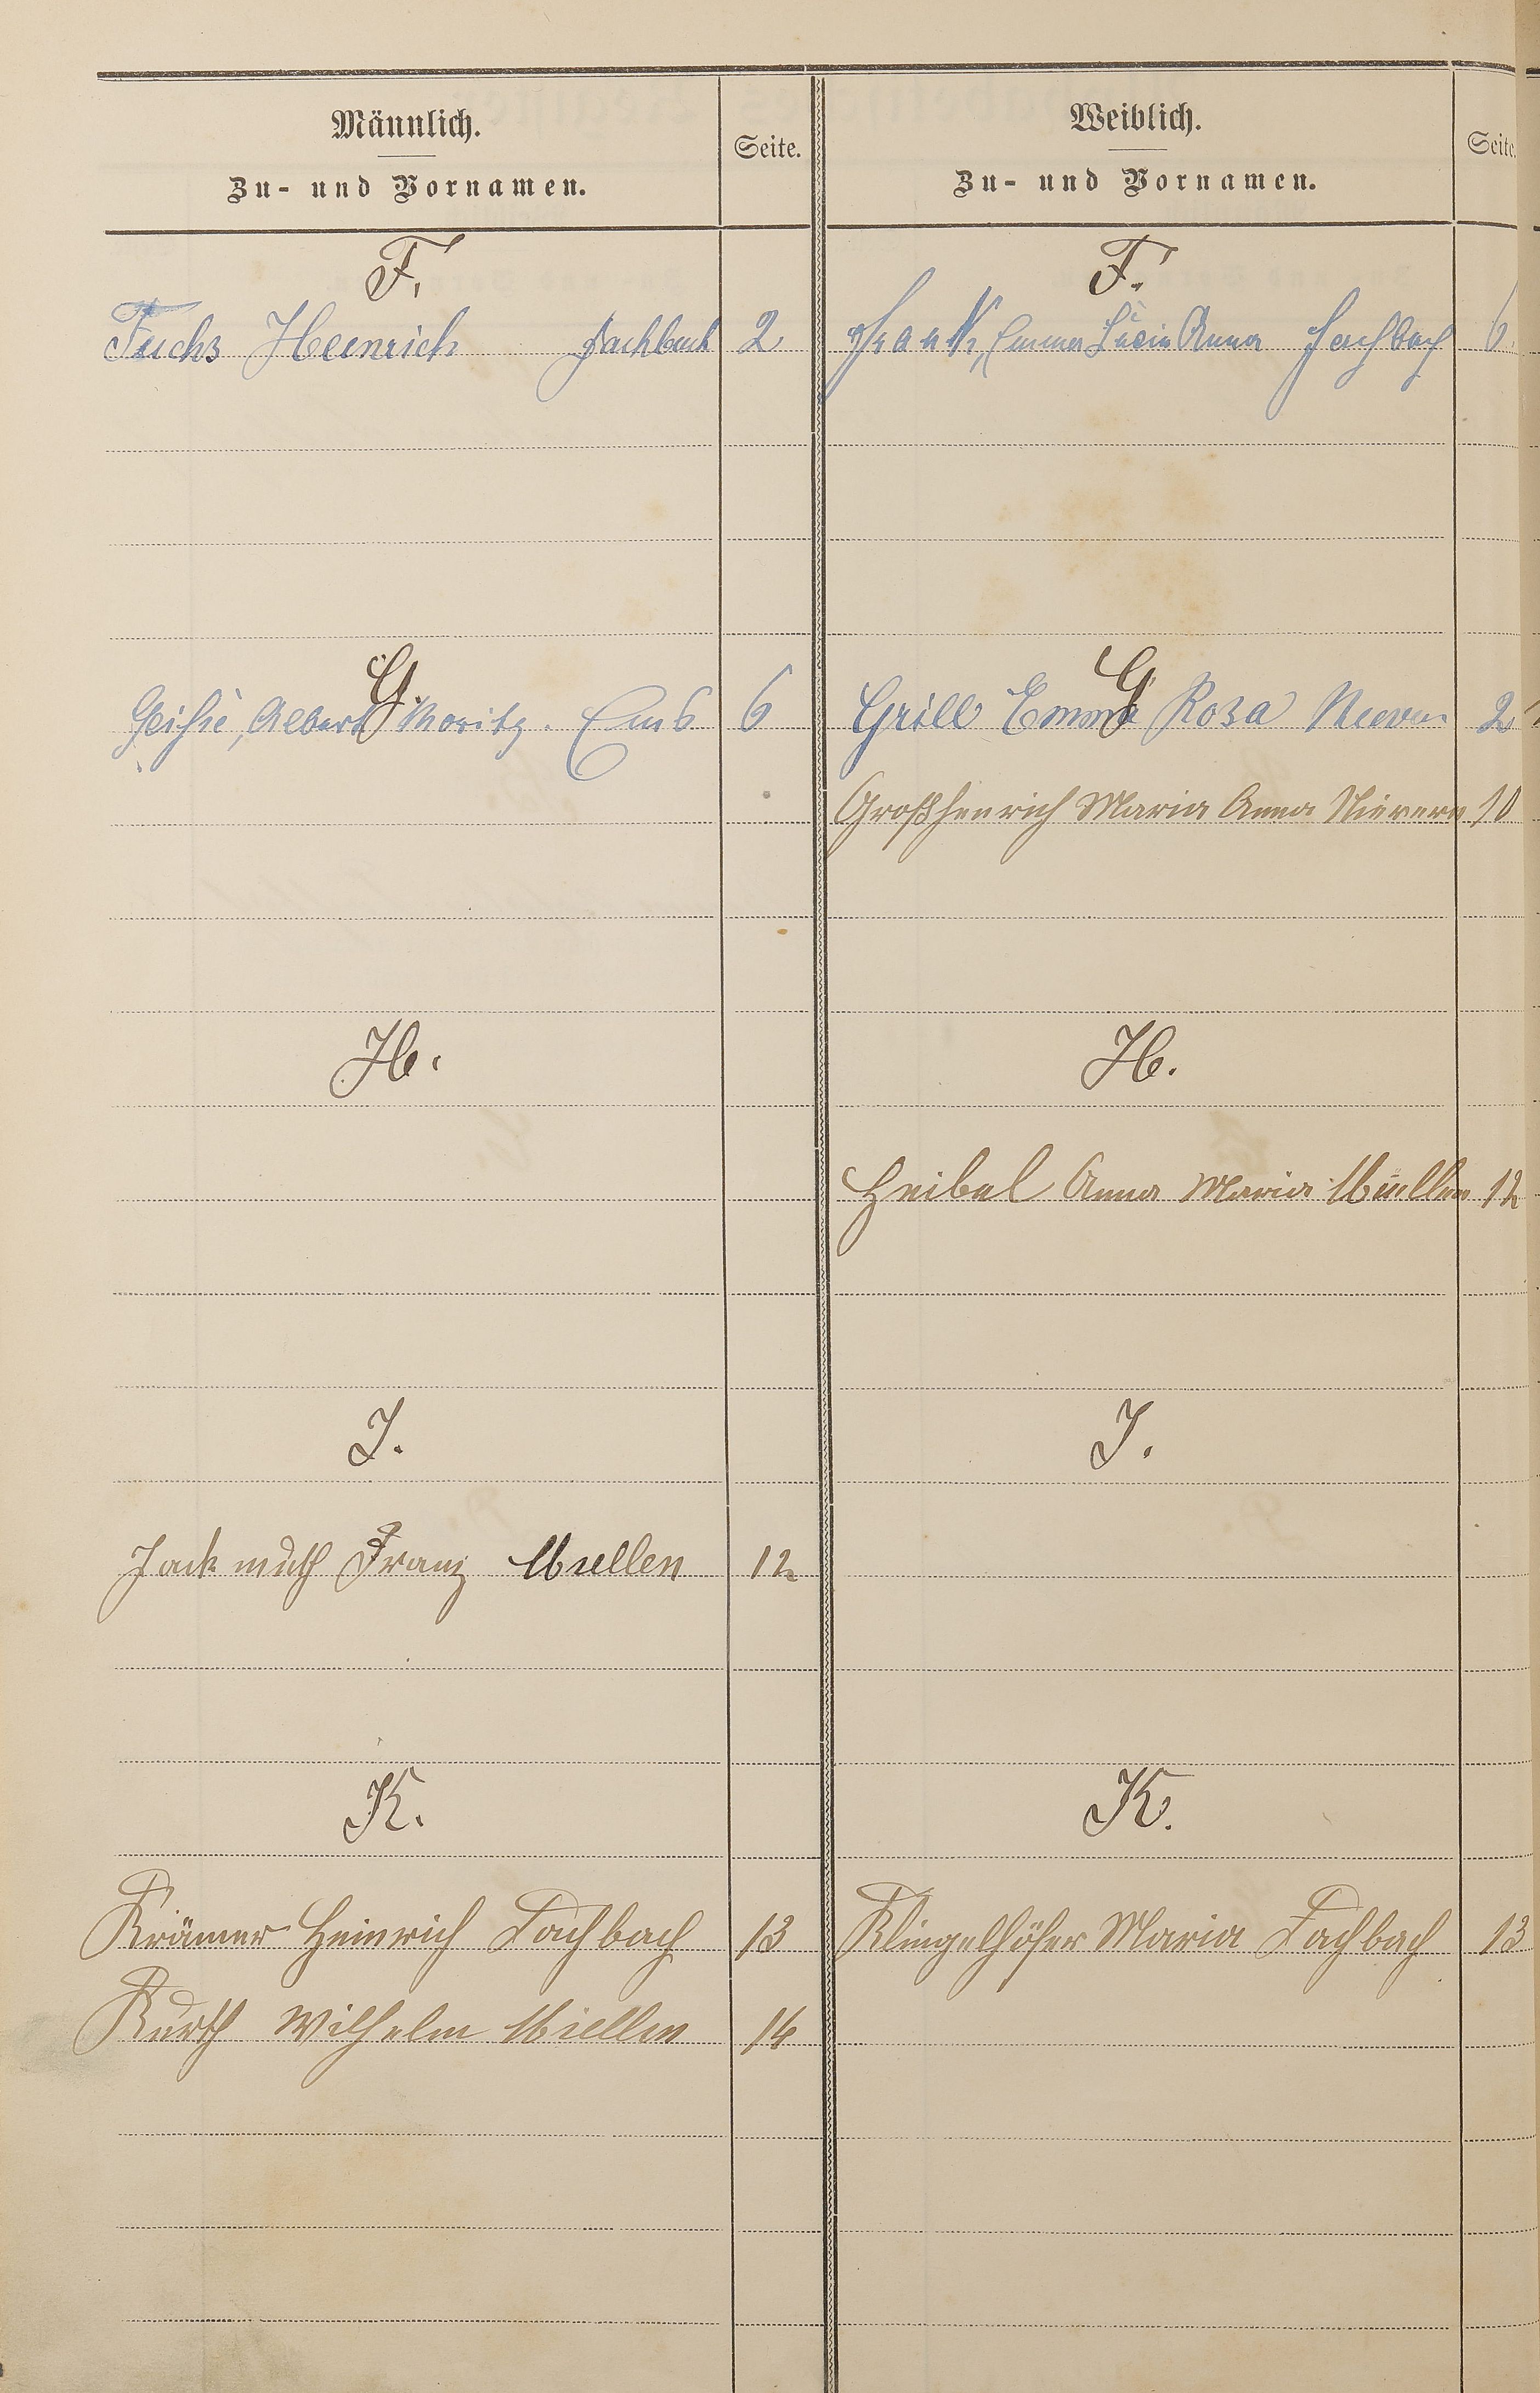 Männlich.
Zu- und Vornamen.
Seite.
Weiblich.
Zu- und Vornamen.
Seite.
F.
F.
Fuchs Heinrich Fachbach 2
Frank, Emma Lucie Anna Fachbach 6
G.
G
Albert Moritz. Ems 6
Grill Emma Rosa Nievern 2
Großhenrich Maria Anna Nievern 10
H.
H.
Heibel Anna Maria Miellen 12
J.
J.
Jackmuth Franz Miellen 12
K.
K.
Krämer Heinrich Fachbach 13
Klingelhöfer Maria Fachbach 13
Kurth Wilhelm Miellen 14